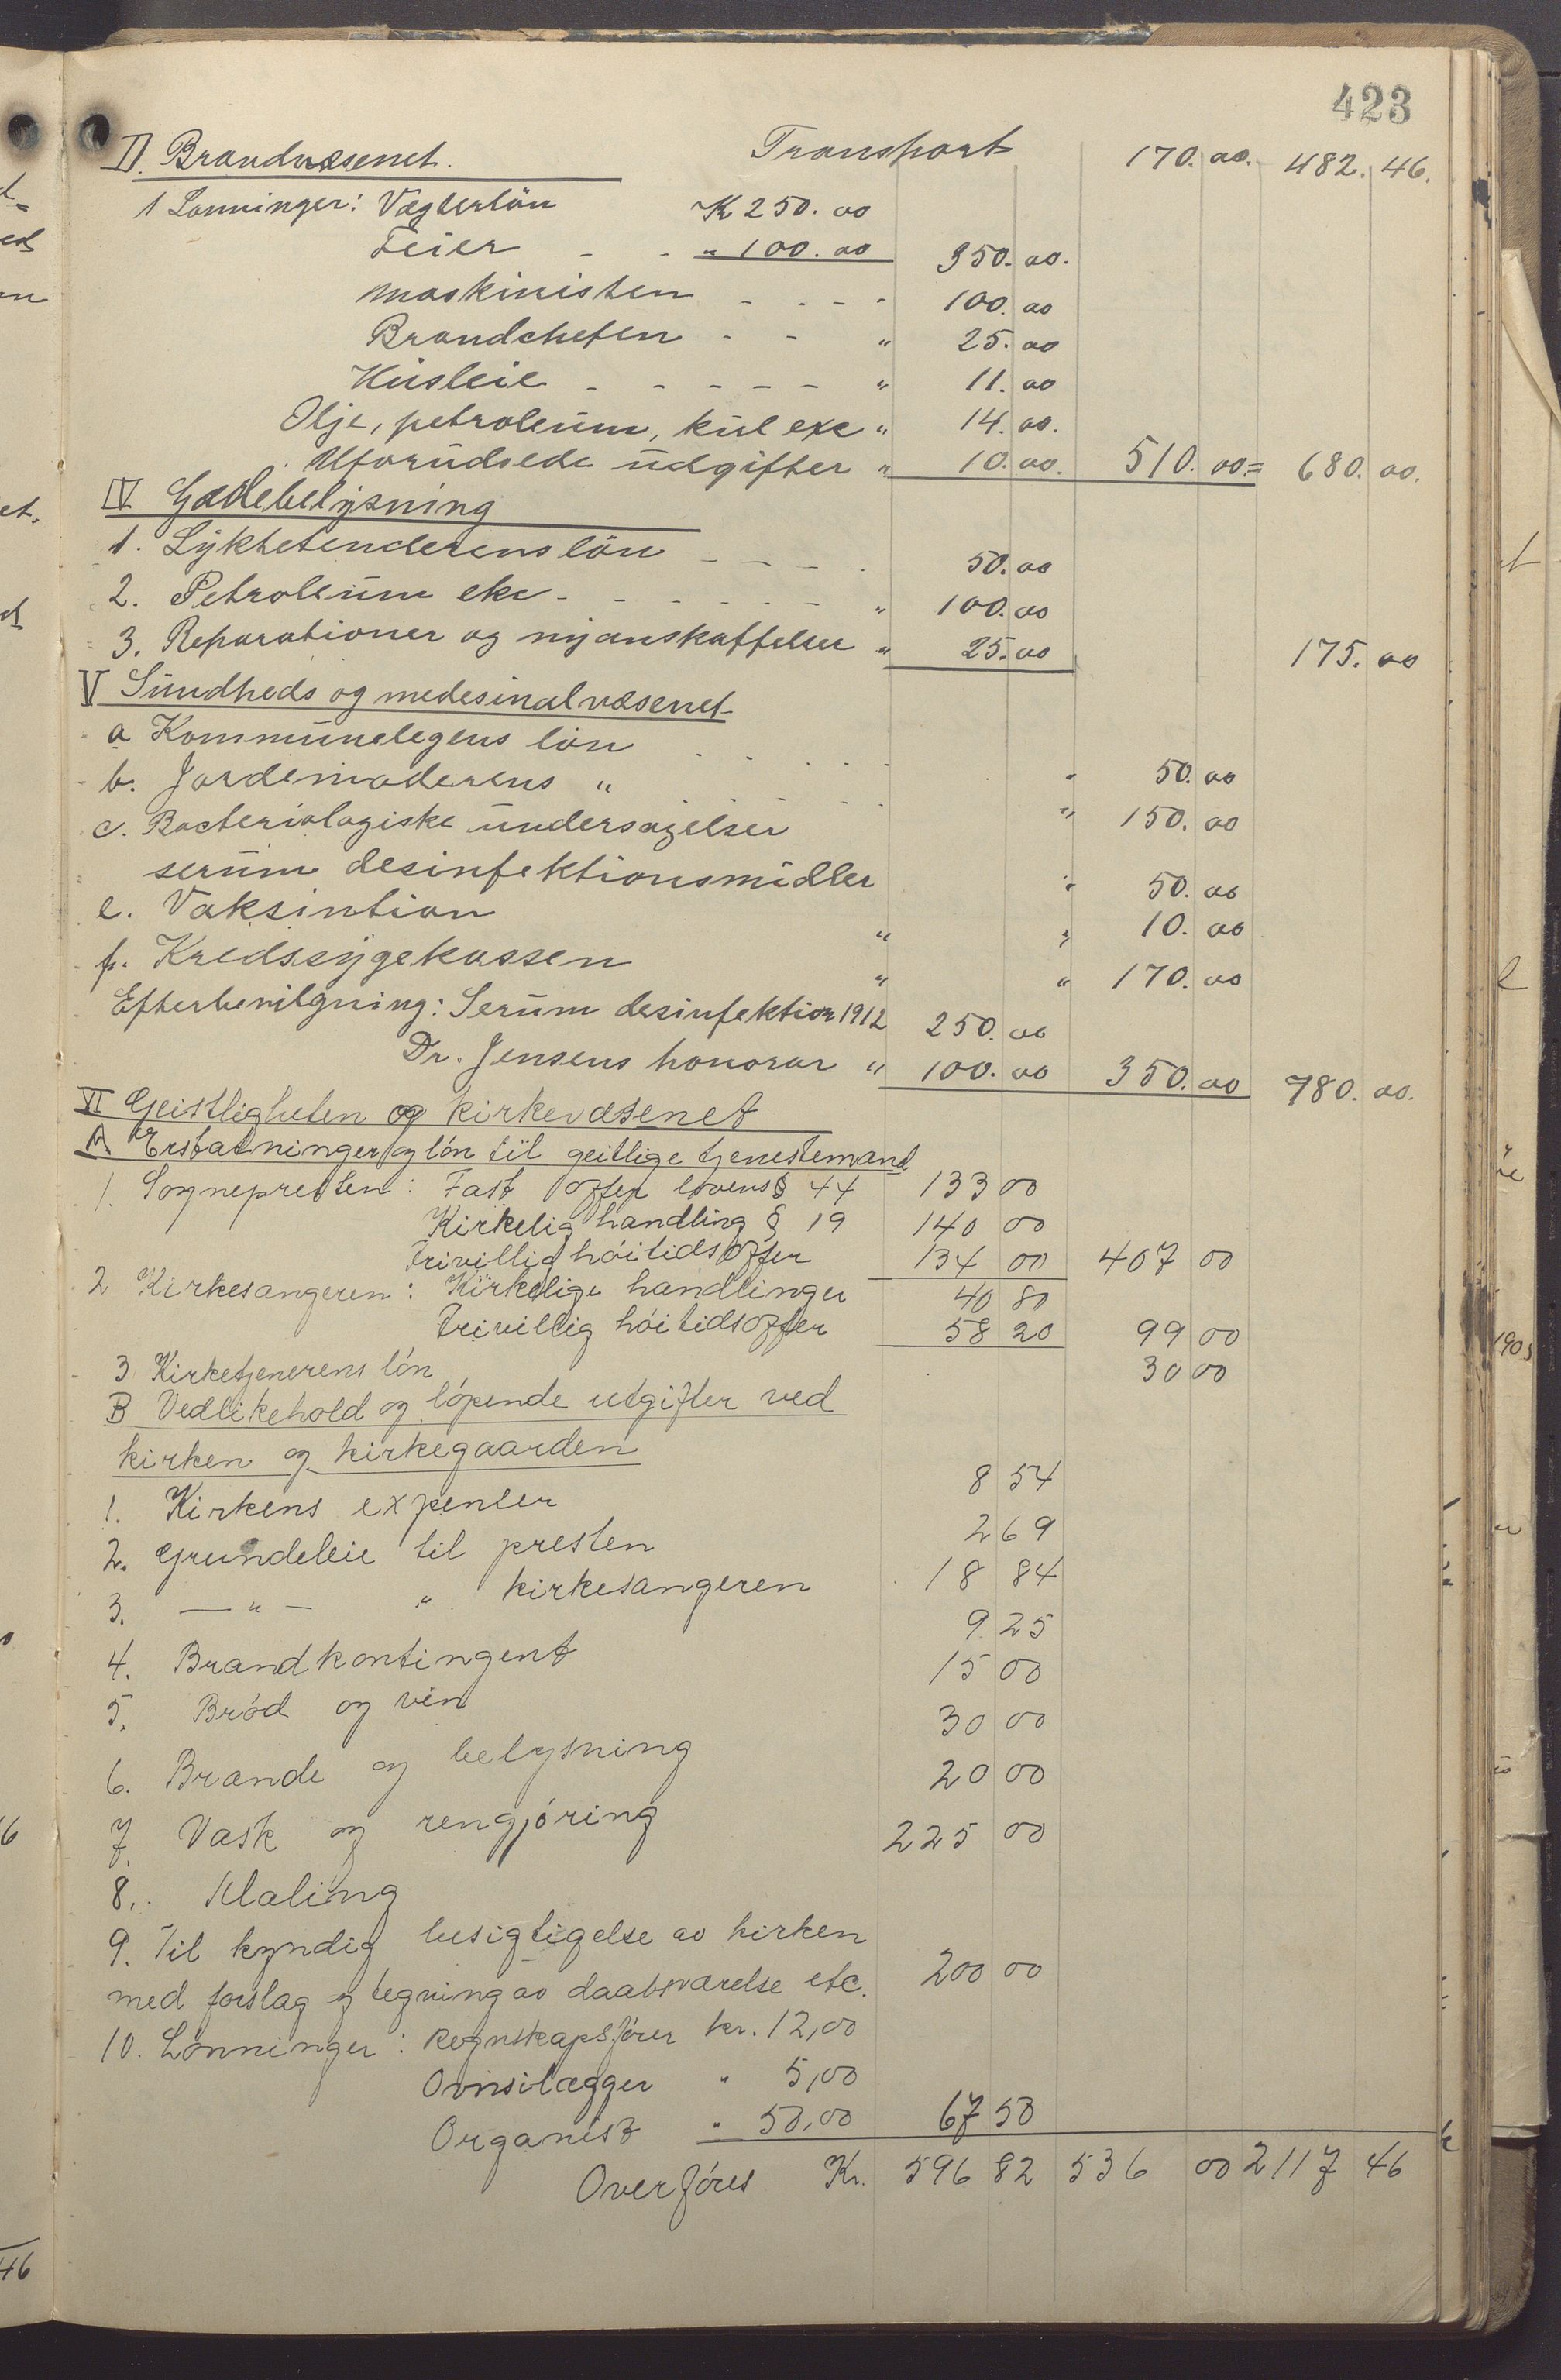 423
D. Brandvæsenet. Transport 170.00. 482.46.
1 Lønninger: Vægterløn Kr 250.00
Feier - - " 100.00 350.00.
Maskinisten - - - - 100.00
Brandchefen - - " 25.00
Husleie - - - - - " 11.00
Olje, petroleum, kul exc " 14.00.
Uforudsede udgifter " 10.00. 510.00 = 680.00.
IV Gadebelysning
1. Lyktetenderens løn - - - . 50.00
2. Petroleum ekc - - - - - - " 100.00
3. Reparationer og nyanskaffelser " 25.00 175.00
V Sundheds og medesinalvæsenet
a Kommunelegens løn . . . . . " 50.00
b. Jordemoderens " . . . . . " 150.00
c. Bacteriologiske undersøgelser
serum desinfektionsmidler " 50.00
e. Vaksintion " " 10.00
f. Kredssygekassen " " 170.00
Efterbevilgning: Serum desinfektion 1912 250.00
Dr. Jensens honorar " 100.00 350.00 780.00.
VI Geistligheten og kirkevæsenet
A Erstatninger og løn til geitlige tjenestemænd
1. Sognepresten: Fast offer lovens § 44 133 00
Kirkelig handling § 19 140 00
Frivillig høitidsoffer 134 00 407 00
2 Kirkesangeren: Kirkelige handlinger 40 80
Frivillig høitidsoffer 58 20 99 00
3 Kirketjenerens løn 30 00
B Vedlikehold og løpende utgifter ved
kirken og kirkegaarden
1. Kirkens expenser 8 54
2. Grundeleie til presten 2 69
3. — " — " kirkesangeren 18 84
4. Brandkontingent 9 25
5. Brød og vin 15 00
6. Brænde og belysning 30 00
7. Vask og rengjøring 20 00
8. Maling 225 00
9. Til kyndig besigtigelse av kirken
med forslag og tegning av daabsværelse etc. 200 00
10. Lønninger: Regnskapsfører kr. 12,00
Ovnsilægger " 5,00
Organist " 50,00 67 50
Overføres Kr. 596 82 536 00 2117 46